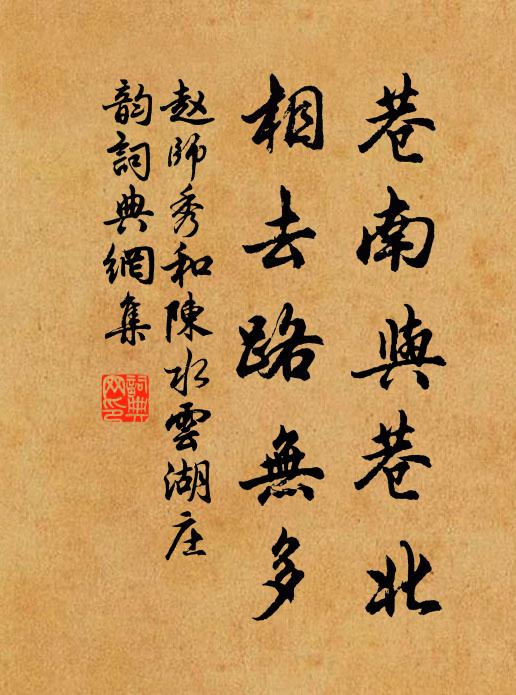 巷南與巷北
相去路無多
赵師秀和陳水雲湖庄
韵詞典網集
詞典
网印